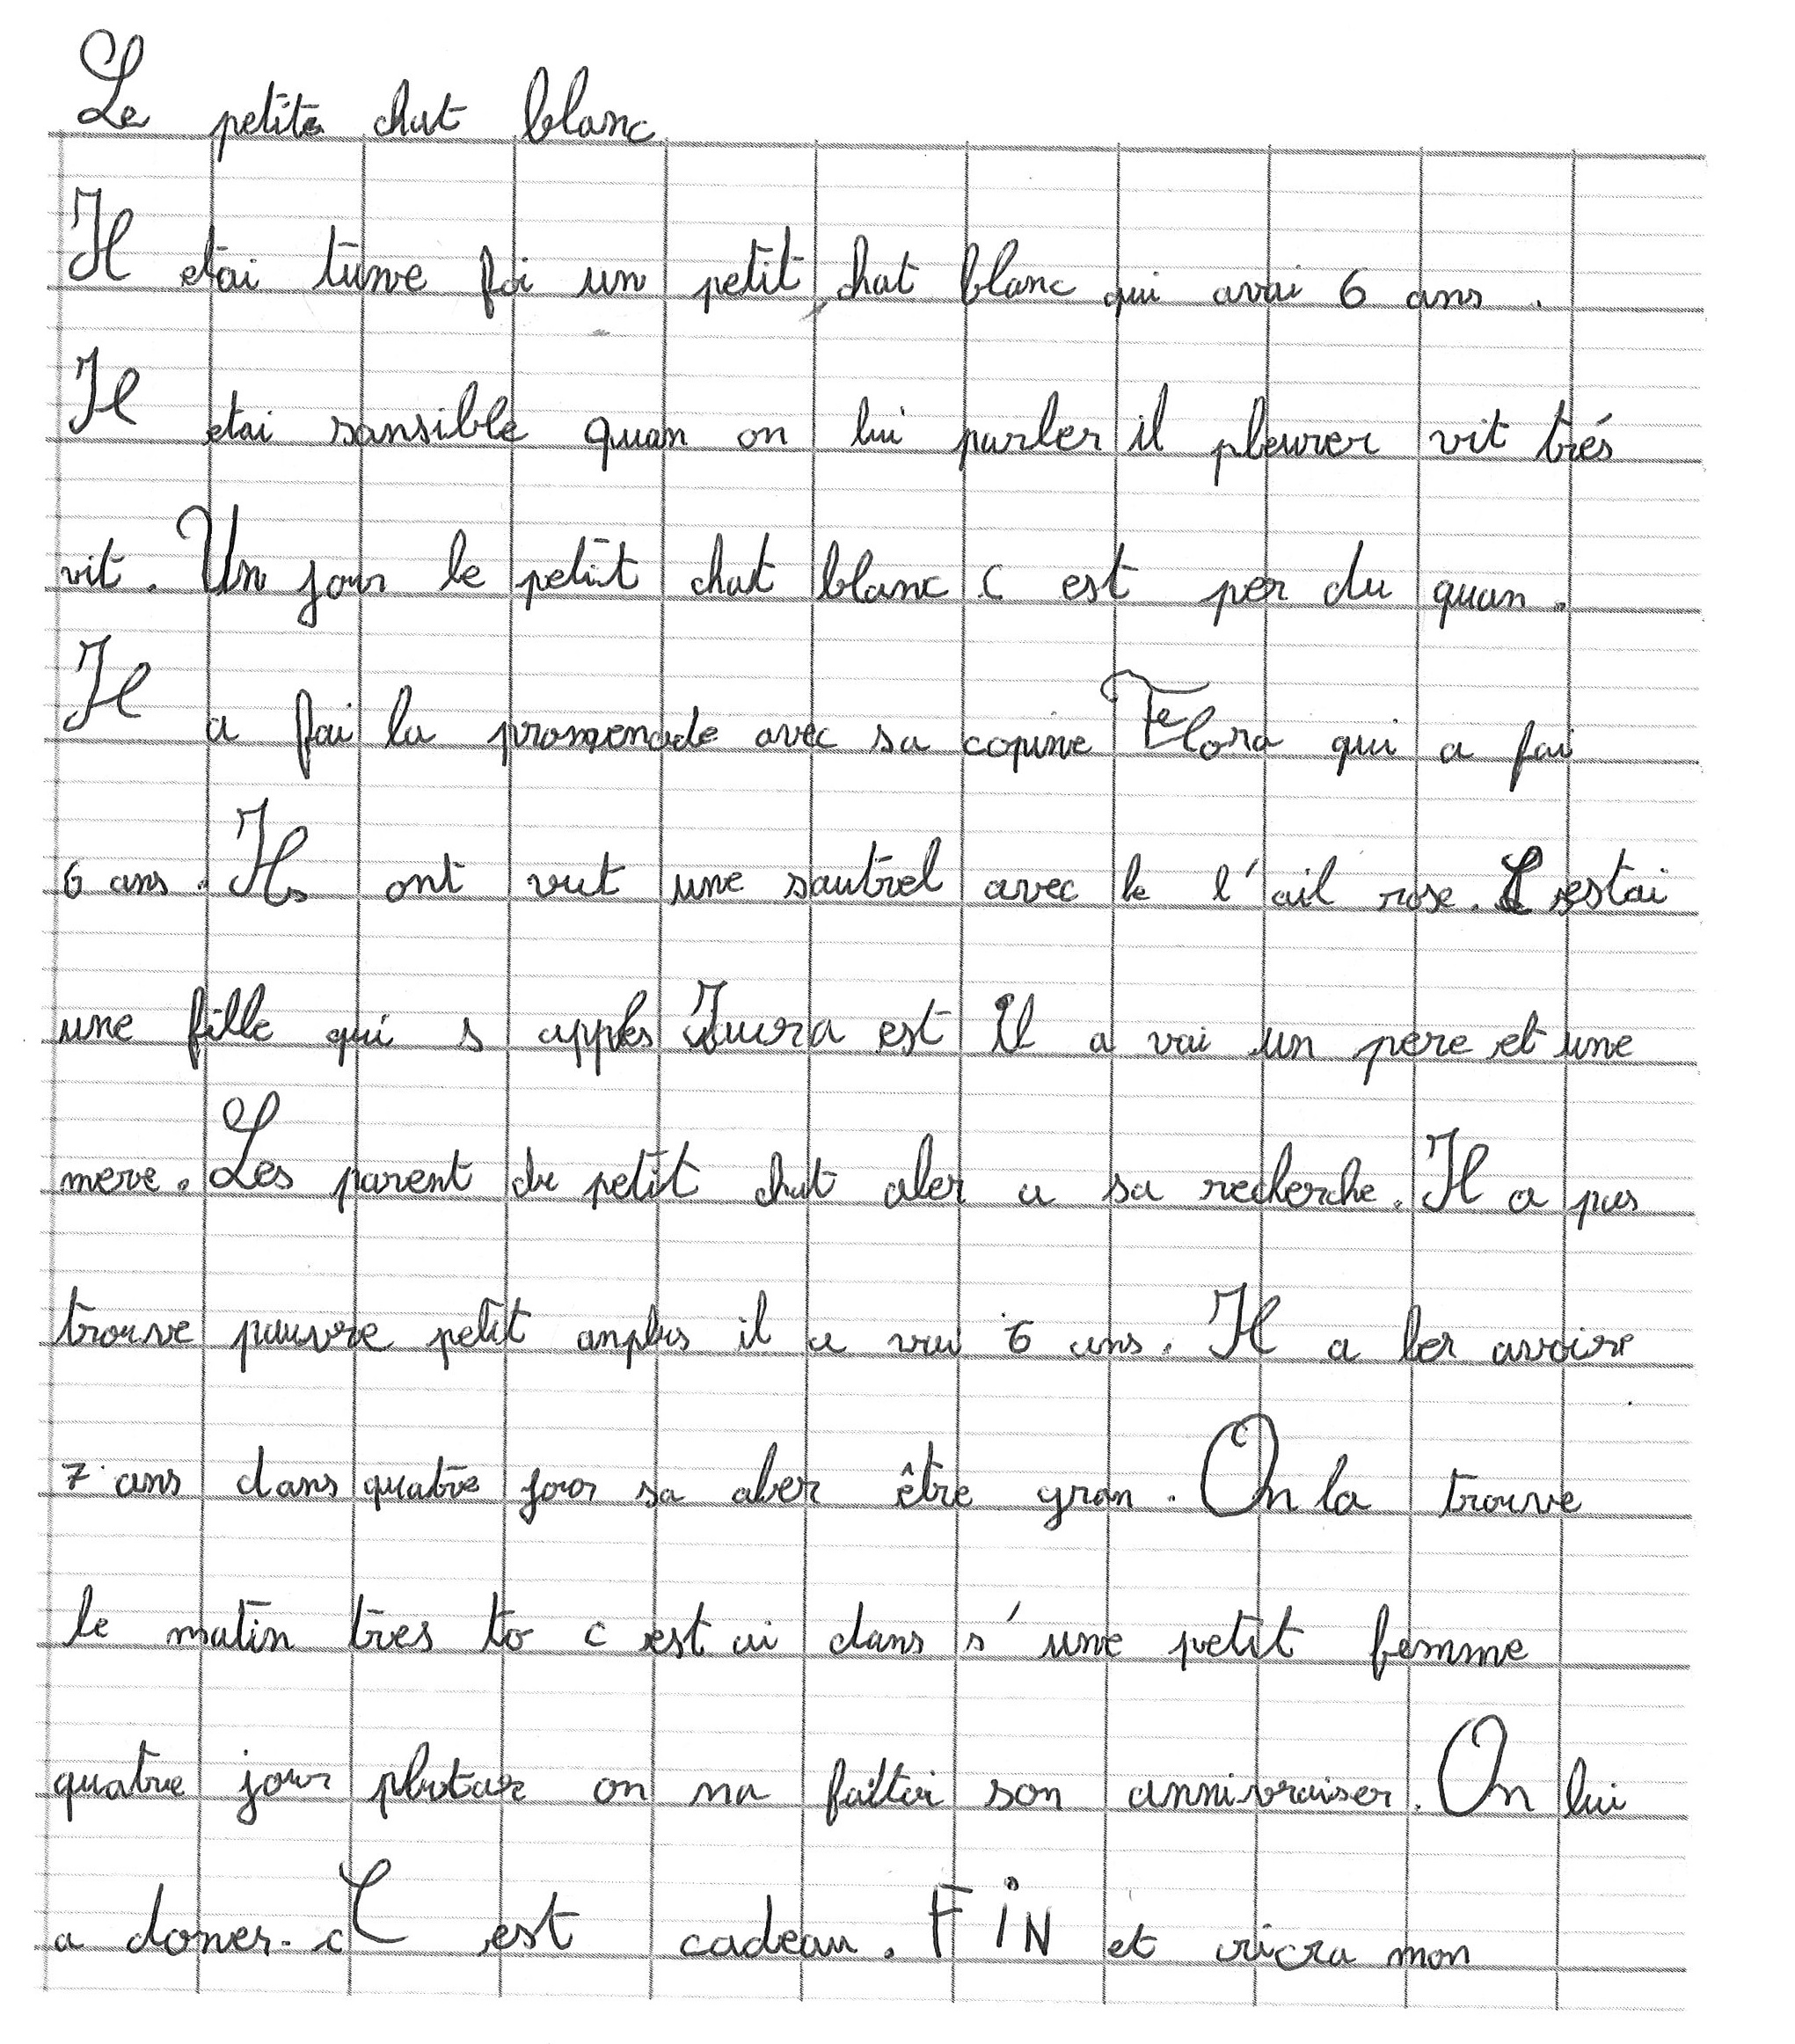 Le petits chat blanc
Il etai tune foi un petit chat blanc qui avai 6 ans .
Il etai sansible quan on lui parler il pleurer vit trés
vit . Un jour le petit chat blanc c est per du quan .
Il a fai la promenade avec sa copine Flora qui a fai
6 ans . Ils ont vut une sautrel avec le l'ail rose . C estai
une fille qui s apples est il a vai un pere et une
mere . Les parent du petit chat aler a sa recherche . Il a pas
trouve pauvre petit anplus il a vai 6 ans . Il a ler avoire
7 ans dans quatre jour sa aler être gran . On la trouve
le matin tres to c est ai dans s'une petit femme
quatre jour plutar on na faittai son annivraiser . On lui
a doner . C est cadeau . FiN et mon